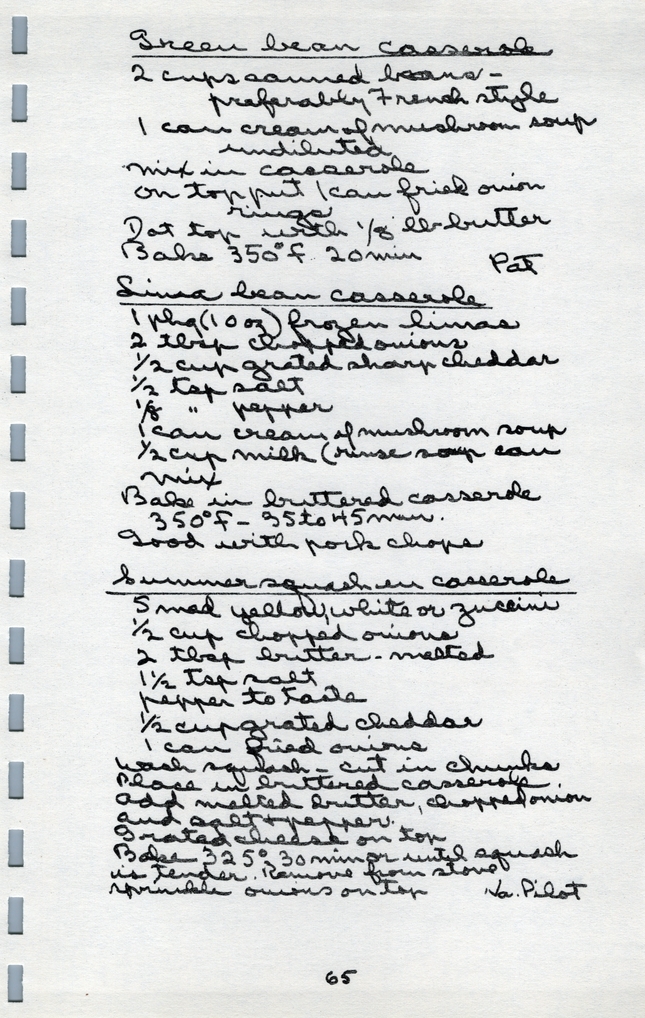 Green bean casserole
2 cups canned beans -
preferably French style
1 can cream of mushroom soup
undiluted
mix in casserole
on top put 1 can fried onion
rings
Dot top with 1/8 lb butter
Bake 350°F 20 min
Pat
Lima bean casserole
1 pkg (10 oz) frozen limas
2 tbsp chopped onions
1/2 cup grated sharp cheddar
1/2 tsp salt
1/8 " pepper
1 can cream of mushroom soup
1/2 cup milk (rinse soup can
mix
Bake in buttered casserole
350°F - 35 to 45 min.
Good with pork chops
Summer squash en casserole
5 med yellow, white or zuccini
1/2 cup chopped onions
2 tbsp butter - melted
1 1/2 tsp salt
pepper to taste
1/2 cup grated cheddar
1 can fried onions
Wash squash - cut in chunks
Place in buttered casserole
add melted butter, chopped onion
and salt + pepper.
Grated cheese on top
Bake 325° 30 min or until squash
is tender. Remove from stove
sprinkle onions on top
Va. Pilot
65